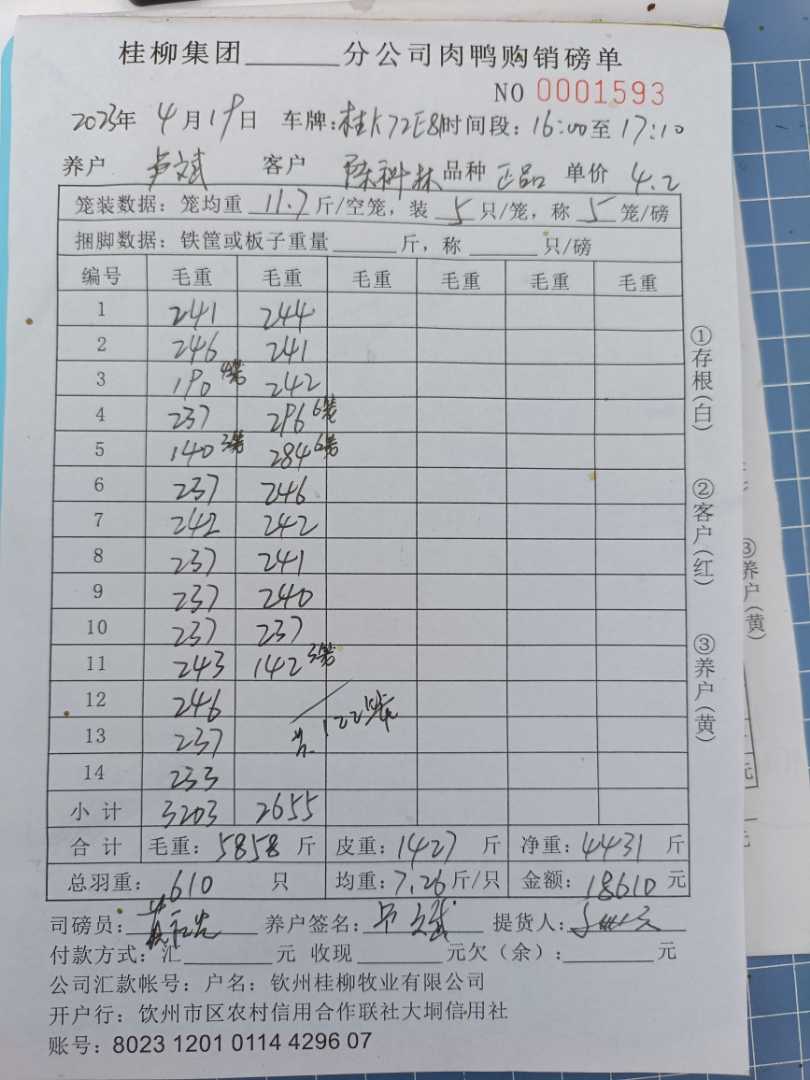 桂柳集团______分公司肉鸭购销磅单
NO 0001593
2023年 4月19日 车牌:桂K72E8 时间段:16:00至17:10
养户 卢文斌 客户 陈科林 品种 正品 单价 4.2
笼装数据:笼均重 11.7 斤/空笼,装 5 只/笼,称 5 笼/磅
捆脚数据:铁筐或板子重量______斤,称______只/磅
编号 毛重 毛重 毛重 毛重 毛重 毛重
1 241 244
2 246 241
3 190 4笼 242
4 237 296 6笼
5 140 3笼 284 6笼
6 237 246
7 242 242
8 237 241
9 237 240
10 237 237
11 243 142 3笼
12 246
13 237 共122笼
14 233
小计 3203 2655
合计 毛重:5858 斤 皮重:1427 斤 净重:4431 斤
总羽重:610 只 均重:7.26斤/只 金额:18610元
司磅员: 养户签名:卢文斌 提货人:
付款方式:汇______元 收现______元欠(余):______元
公司汇款帐号:户名:钦州桂柳牧业有限公司
开户行:饮州市区农村信用合作联社大垌信用社
账号:8023 1201 0114 4296 07
①存根(白)
②客户(红)
③养户(黄)
③养户(黄)
元